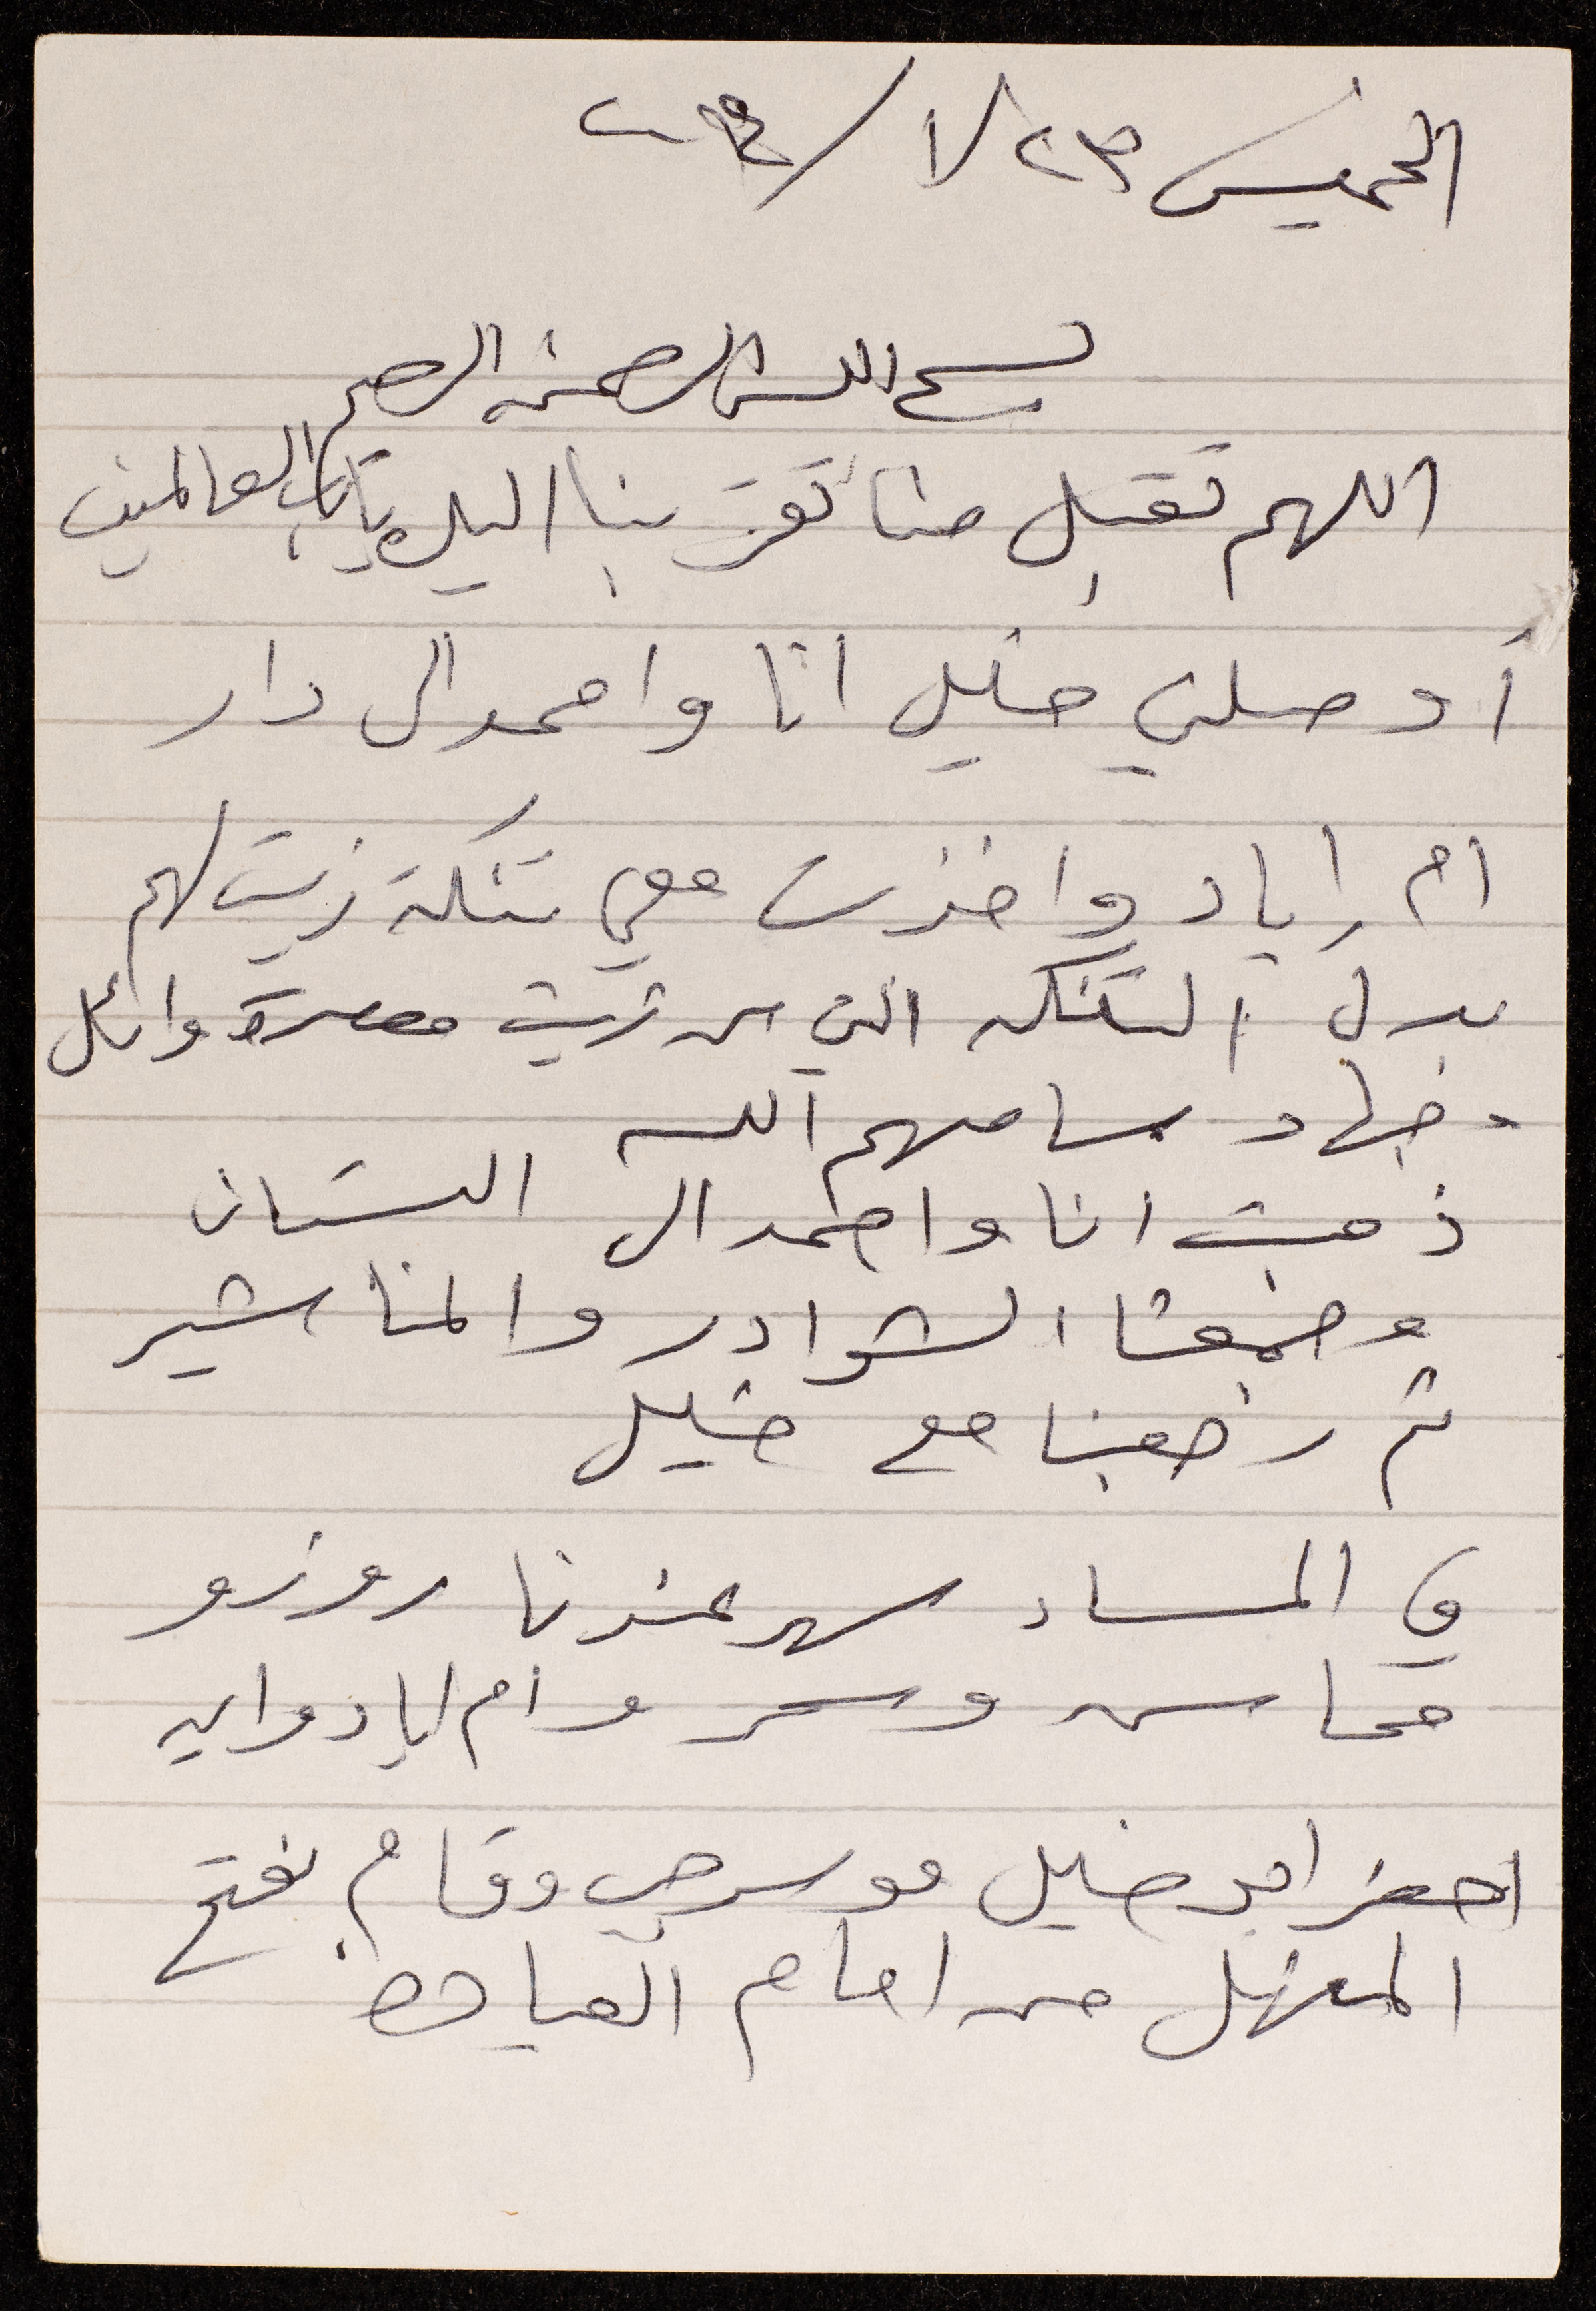 الخميس ٢٣/١/
بسم الله الرحمن الرحيم
اللهم تقبل منا تقربنا اليك يا رب العالمين
أوصلني خليل انا واحمد الى دار
ام إياد واخذت معي تنكة زيت لهم
بدل التنكه التي من زيت معصرة وائل
وجهاد سامهم الله
ذهبت انا واحمد الى البستان
وجمعنا الشوادر والمناشير
ثم رجعنا مع خليل
في المساء سهر عندنا روزو
محاسن وسحر وام إياد وايه
احضر ابو خليل موسرجي وقام بفتح
المنهل من امام العيادة